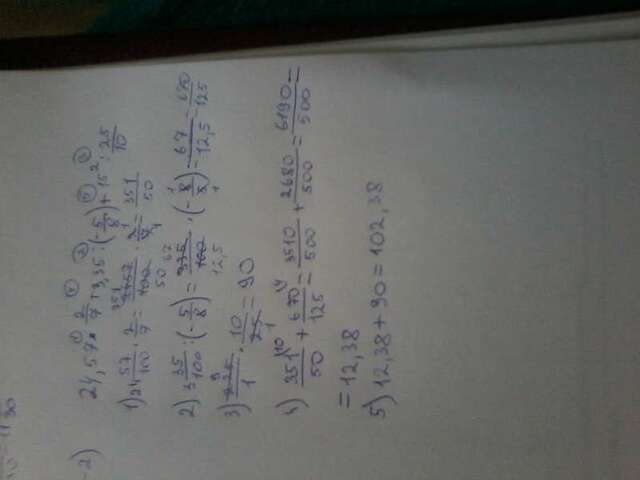 -2)
24,57 · 2/7 + 3,35 : (-5/8) + 15² : 25/10
1) 24 57/100 · 2/7 = 2457/100 · 2/7 = 351/50
2) 3 35/100 : (-5/8) = 335/100 · (-8/5) = 67/12,5 = 670/125
3) 225/1 · 10/25 = 90
4) 351/50 + 670/125 = 3510/500 + 2680/500 = 6190/500 =
= 12,38
5) 12,38 + 90 = 102,38